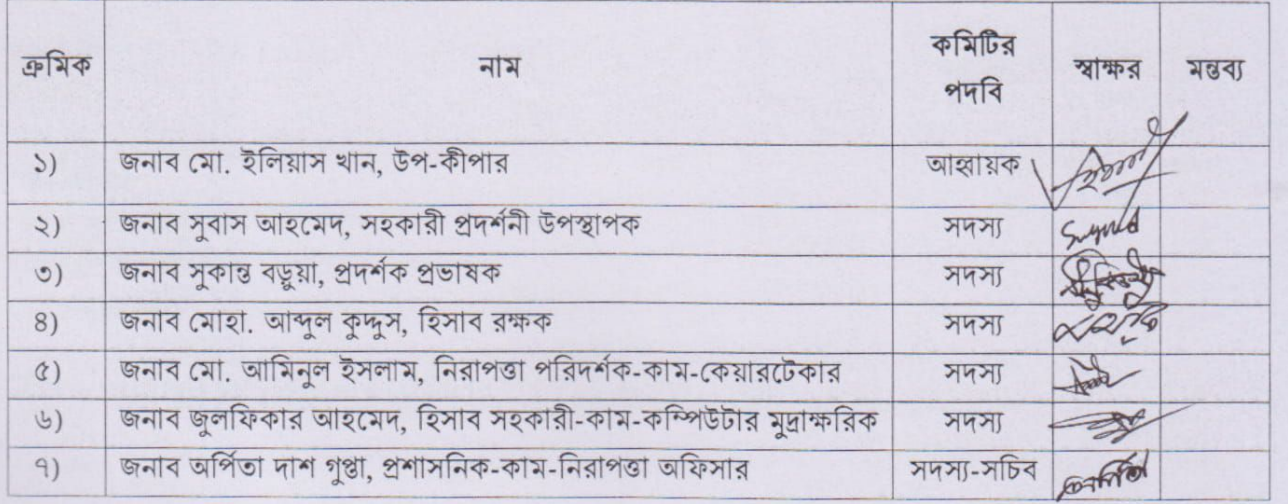 ক্রমিক নাম কমিটির পদবি স্বাক্ষর মন্তব্য
১) জনাব মো. ইলিয়াস খান, উপ-কীপার আহ্বায়ক
২) জনাব সুবাস আহমেদ, সহকারী প্রদর্শনী উপস্থাপক সদস্য
৩) জনাব সুকান্ত বড়ুয়া, প্রদর্শক প্রভাষক সদস্য
৪) জনাব মোহা. আব্দুল কুদ্দুস, হিসাব রক্ষক সদস্য
৫) জনাব মো. আমিনুল ইসলাম, নিরাপত্তা পরিদর্শক-কাম-কেয়ারটেকার সদস্য
৬) জনাব জুলফিকার আহমেদ, হিসাব সহকারী-কাম-কম্পিউটার মুদ্রাক্ষরিক সদস্য
৭) জনাব অর্পিতা দাশ গুপ্তা, প্রশাসনিক-কাম-নিরাপত্তা অফিসার সদস্য-সচিব